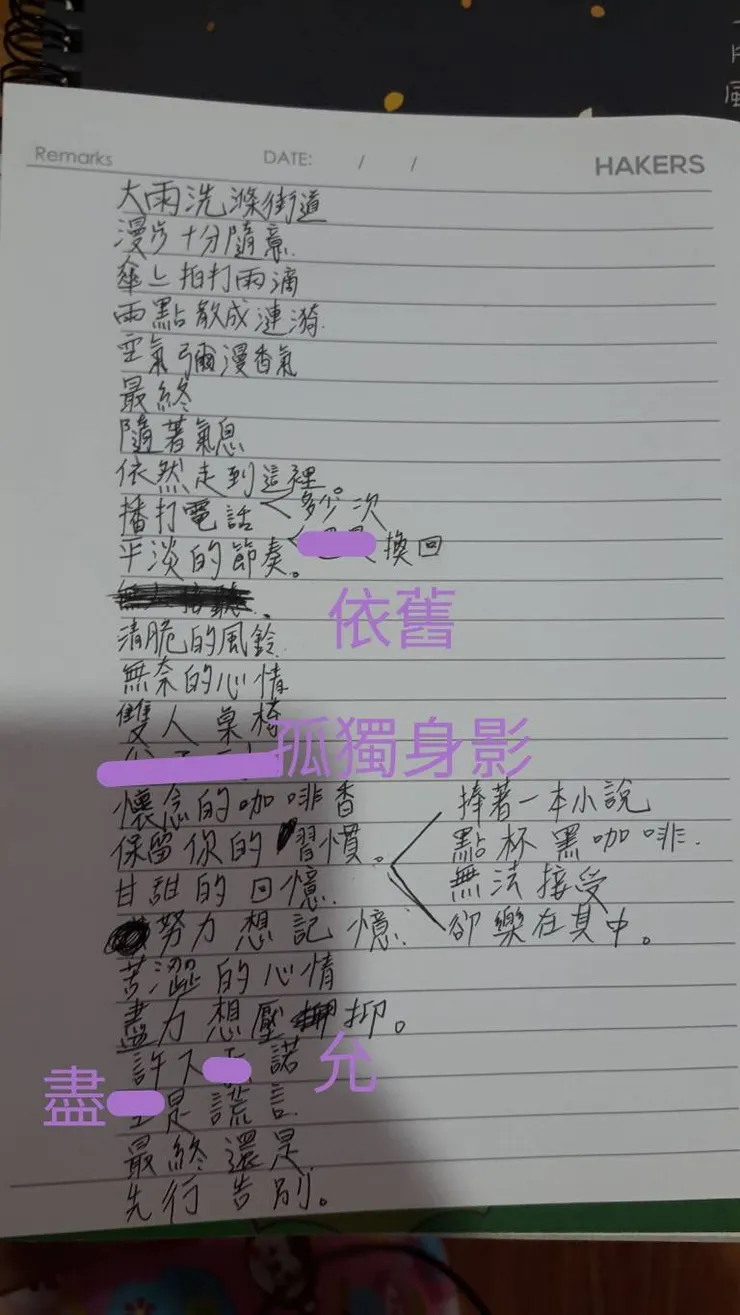 Remarks DATE: / / HAKERS
大雨洗滌街道
漫步十分隨意.
傘上拍打雨滴
雨點散成漣漪.
空氣彌漫香氣
最終
隨著氣息
依然走到這裡
播打電話<多少次
平淡的節奏。<換回
依舊
清脆的風鈴.
無奈的心情
雙人桌椅
孤獨身影
懷念的咖啡香
保留你的習慣。
捧著一本小說
點杯黑咖啡.
無法接受
卻樂在其中。
甘甜的回憶.
努力想記憶.
苦澀的心情
盡力想壓抑。
許下諾
允
盡
是謊言.
最終還是
先行告別。
風